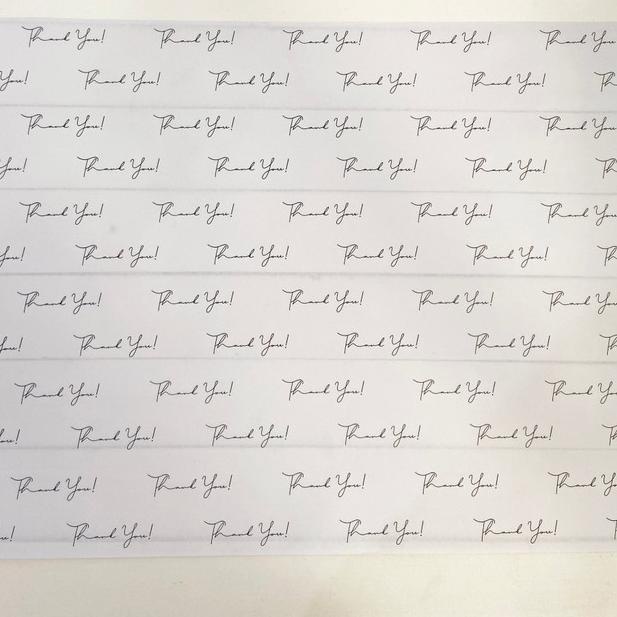 Thank You! Thank You! Thank You! Thank You! Thank You
You! Thank You! Thank You! Thank You! Thank You!
Thank You! Thank You! Thank You! Thank You! Thank You
You! Thank You! Thank You! Thank You! Thank You!
Thank You! Thank You! Thank You! Thank You! Thank You
You! Thank You! Thank You! Thank You! Thank You!
Thank You! Thank You! Thank You! Thank You! Thank You
You! Thank You! Thank You! Thank You! Thank You!
Thank You! Thank You! Thank You! Thank You! Thank You
You! Thank You! Thank You! Thank You! Thank You!
Thank You! Thank You! Thank You! Thank You! Thank You
Thank You! Thank You! Thank You! Thank You!